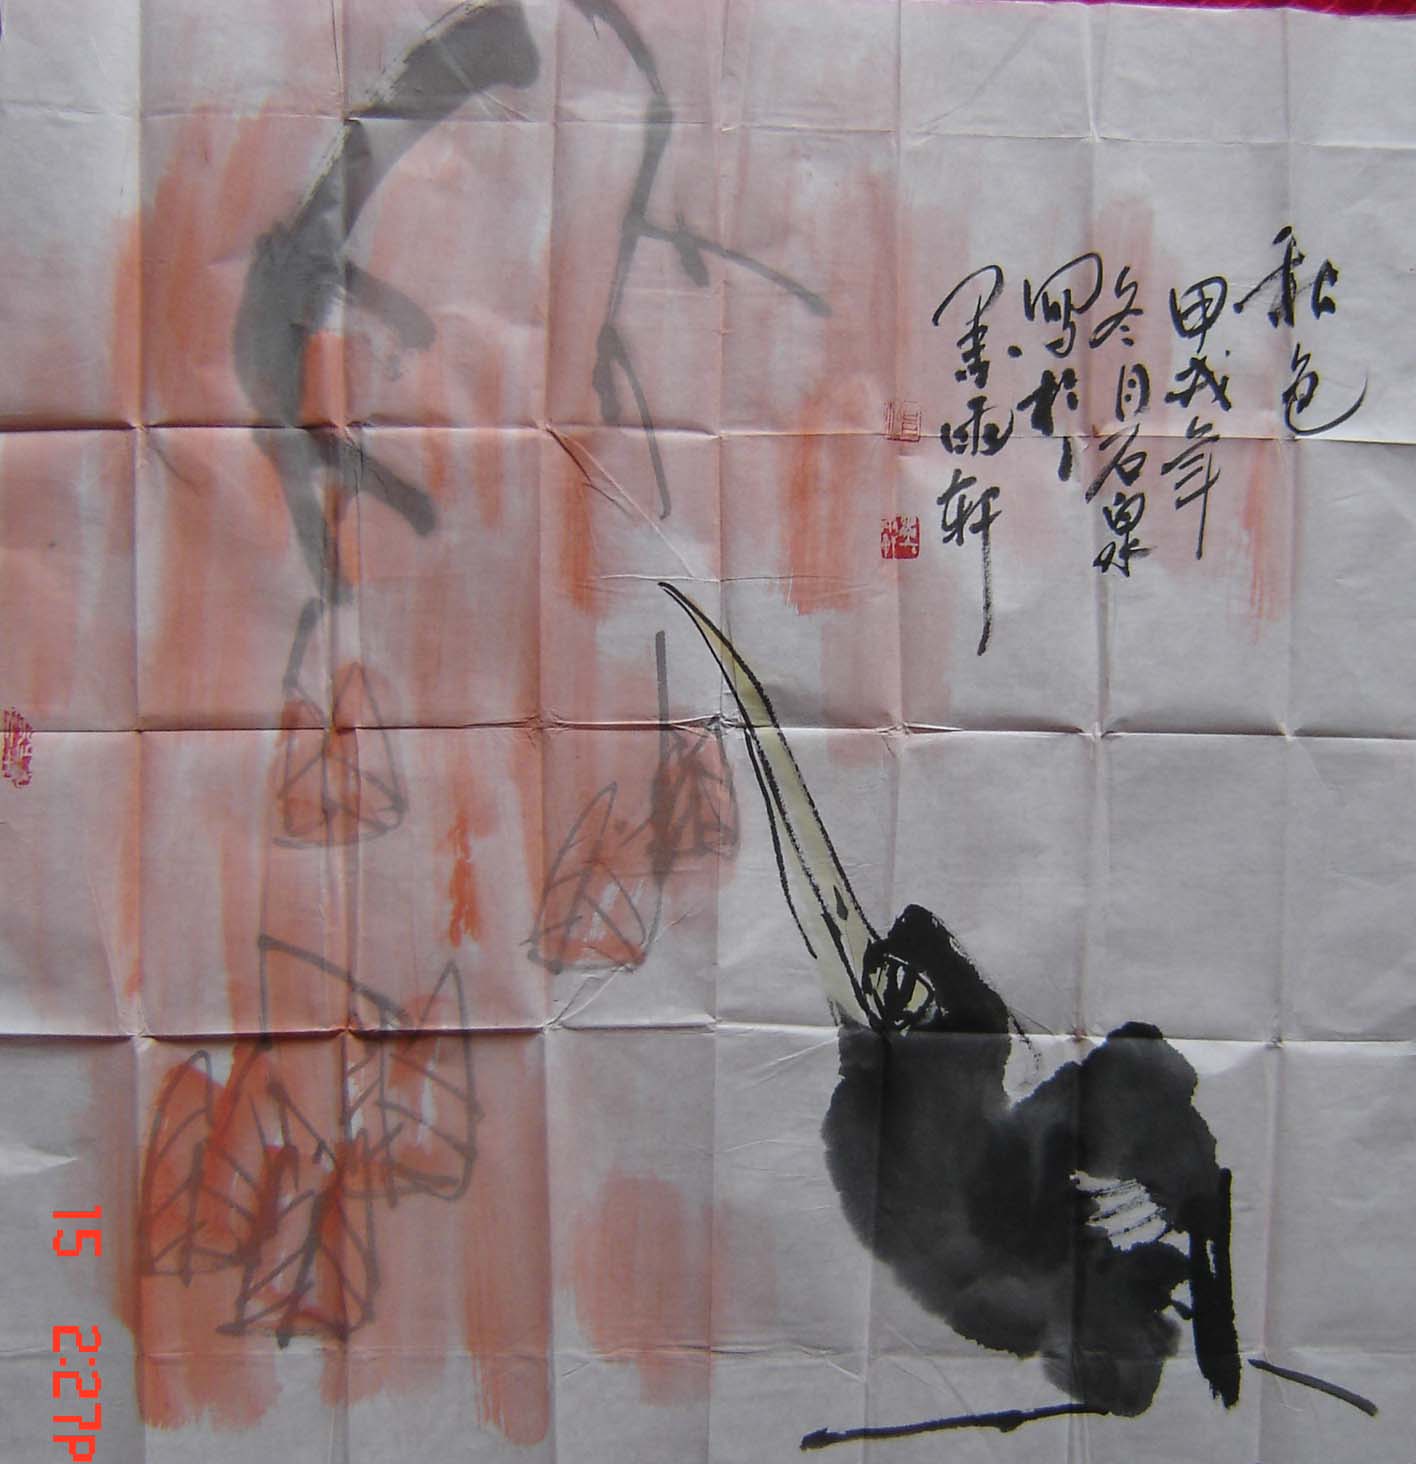 秋色
甲戌年
冬月石泉
寫於
墨雨軒
15 2:27P